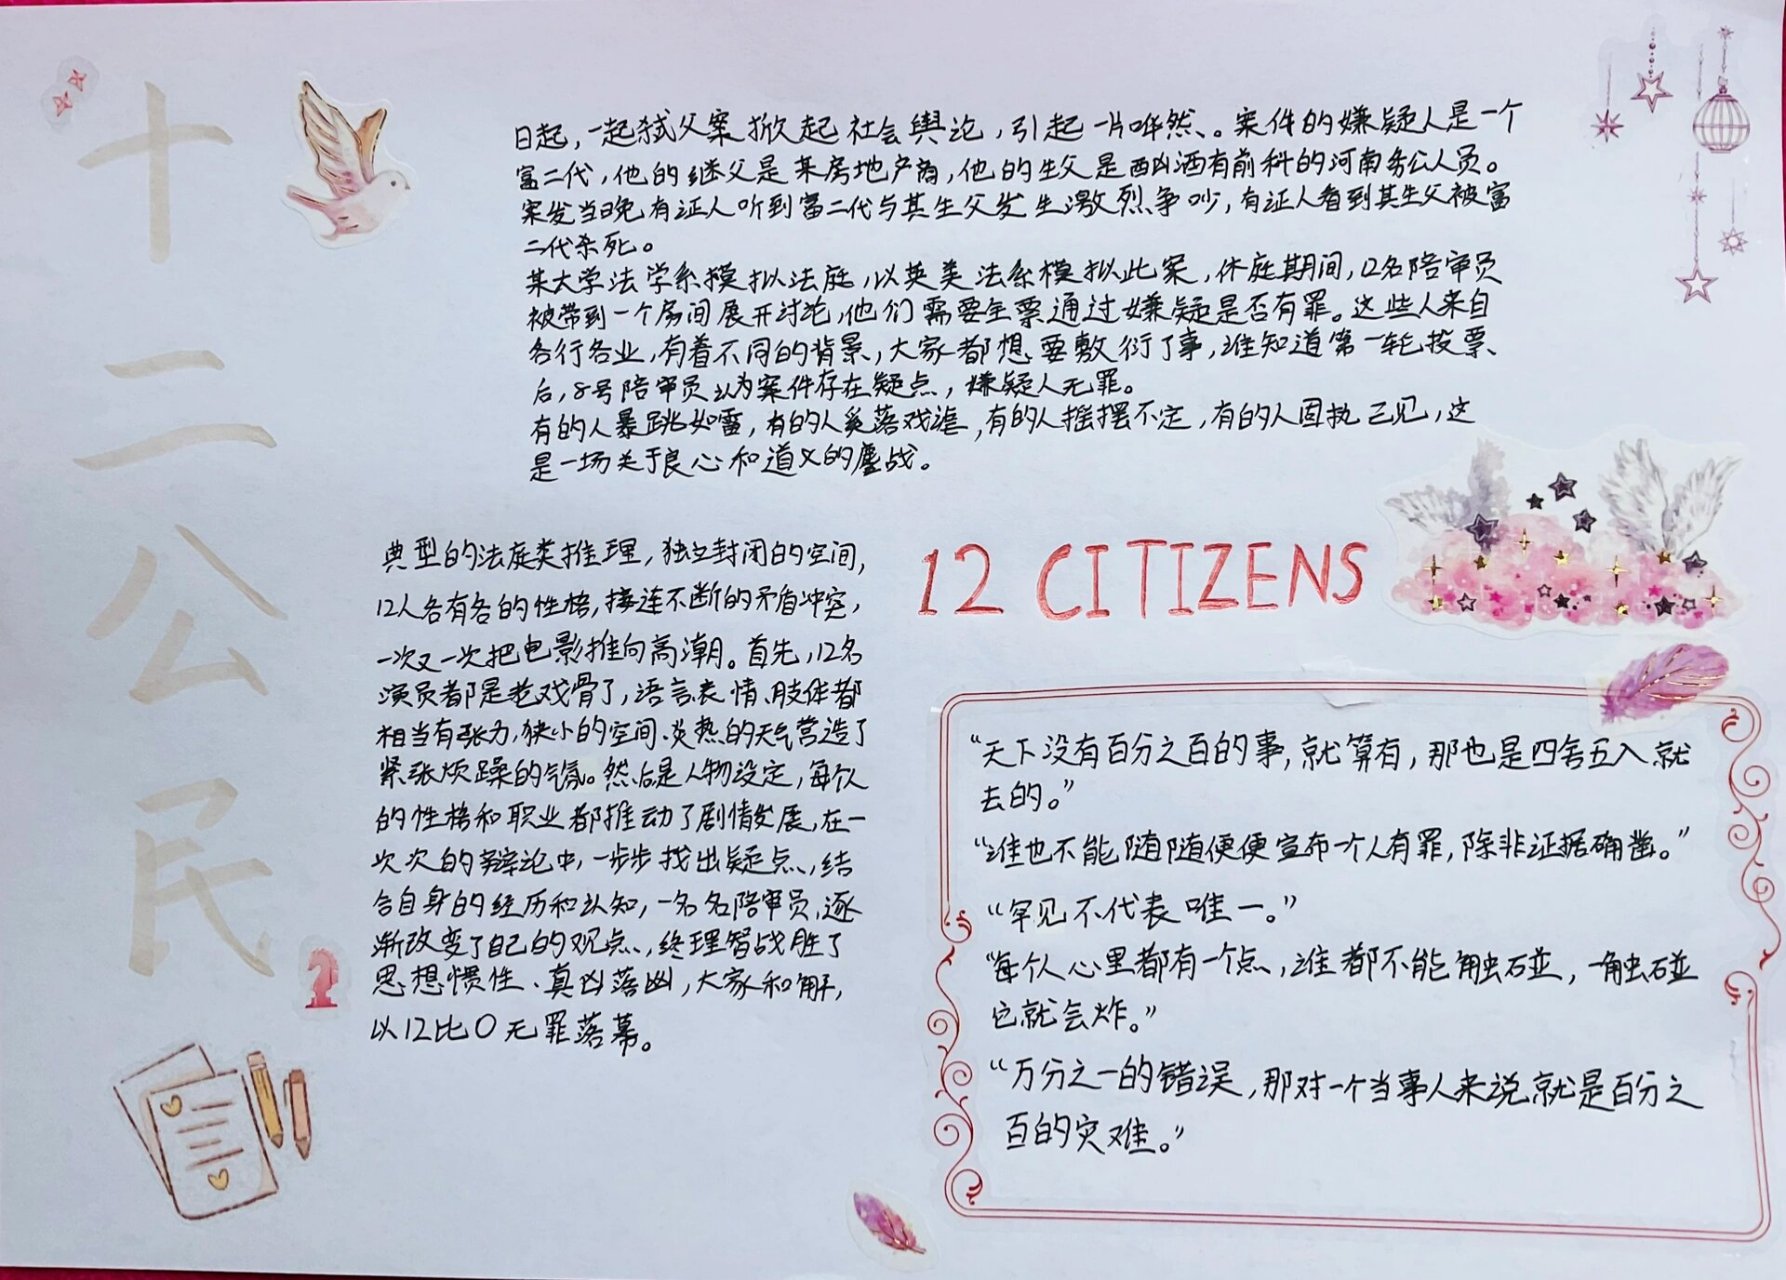 十二公民
日起，一起弑父案掀起社会舆论，引起一片哗然、。案件的嫌疑人是一个
富二代，他的继父是某房地产商，他的生父是酗酒有前科的河南务公人员。
案发当晚有证人听到富二代与其生父发生激烈争吵，有证人看到其生父被富
二代杀死。
某大学法学系模拟法庭，以英美法系模拟此案，休庭期间，12名陪审员
被带到一个房间展开讨论，他们需要全票通过嫌疑是否有罪。这些人来自
各行各业，有着不同的背景，大家都想要敷衍了事，谁知道第一轮投票、
后，8号陪审员以为案件存在疑点，嫌疑人无罪。
有的人暴跳如雷，有的人奚落戏谑，有的人摇摆不定，有的人固执己见，这
是一场关于良心和道义的鏖战。
典型的法庭类推理，独立封闭的空间，
12人各有各的性格，接连不断的矛盾冲突，
一次又一次把电影推向高潮。首先，12名
演员都是老戏骨了，语言、表情、肢体都
相当有张力，狭小的空间、炎热的天气营造了
紧张烦躁的气氛。然后是人物设定，每个人
的性格和职业都推动了剧情发展，在一
次次的辩论中，一步步找出疑点、，结
合自身的经历和认知，一名名陪审员，逐
渐改变了自己的观点、，终理智战胜了
思想惯性、真凶落幽，大家和解，
以12比0无罪落幕。
12 CITIZENS
“天下没有百分之百的事，就算有，那也是四舍五入就
去的。”
“谁也不能随随便便宣布一个人有罪，除非证据确凿。”
“罕见不代表唯一。”
“每个人心里都有一个点，谁都不能触碰，一触碰
它就会炸。”
“万分之一的错误，那对一个当事人来说就是百分之
百的灾难。”